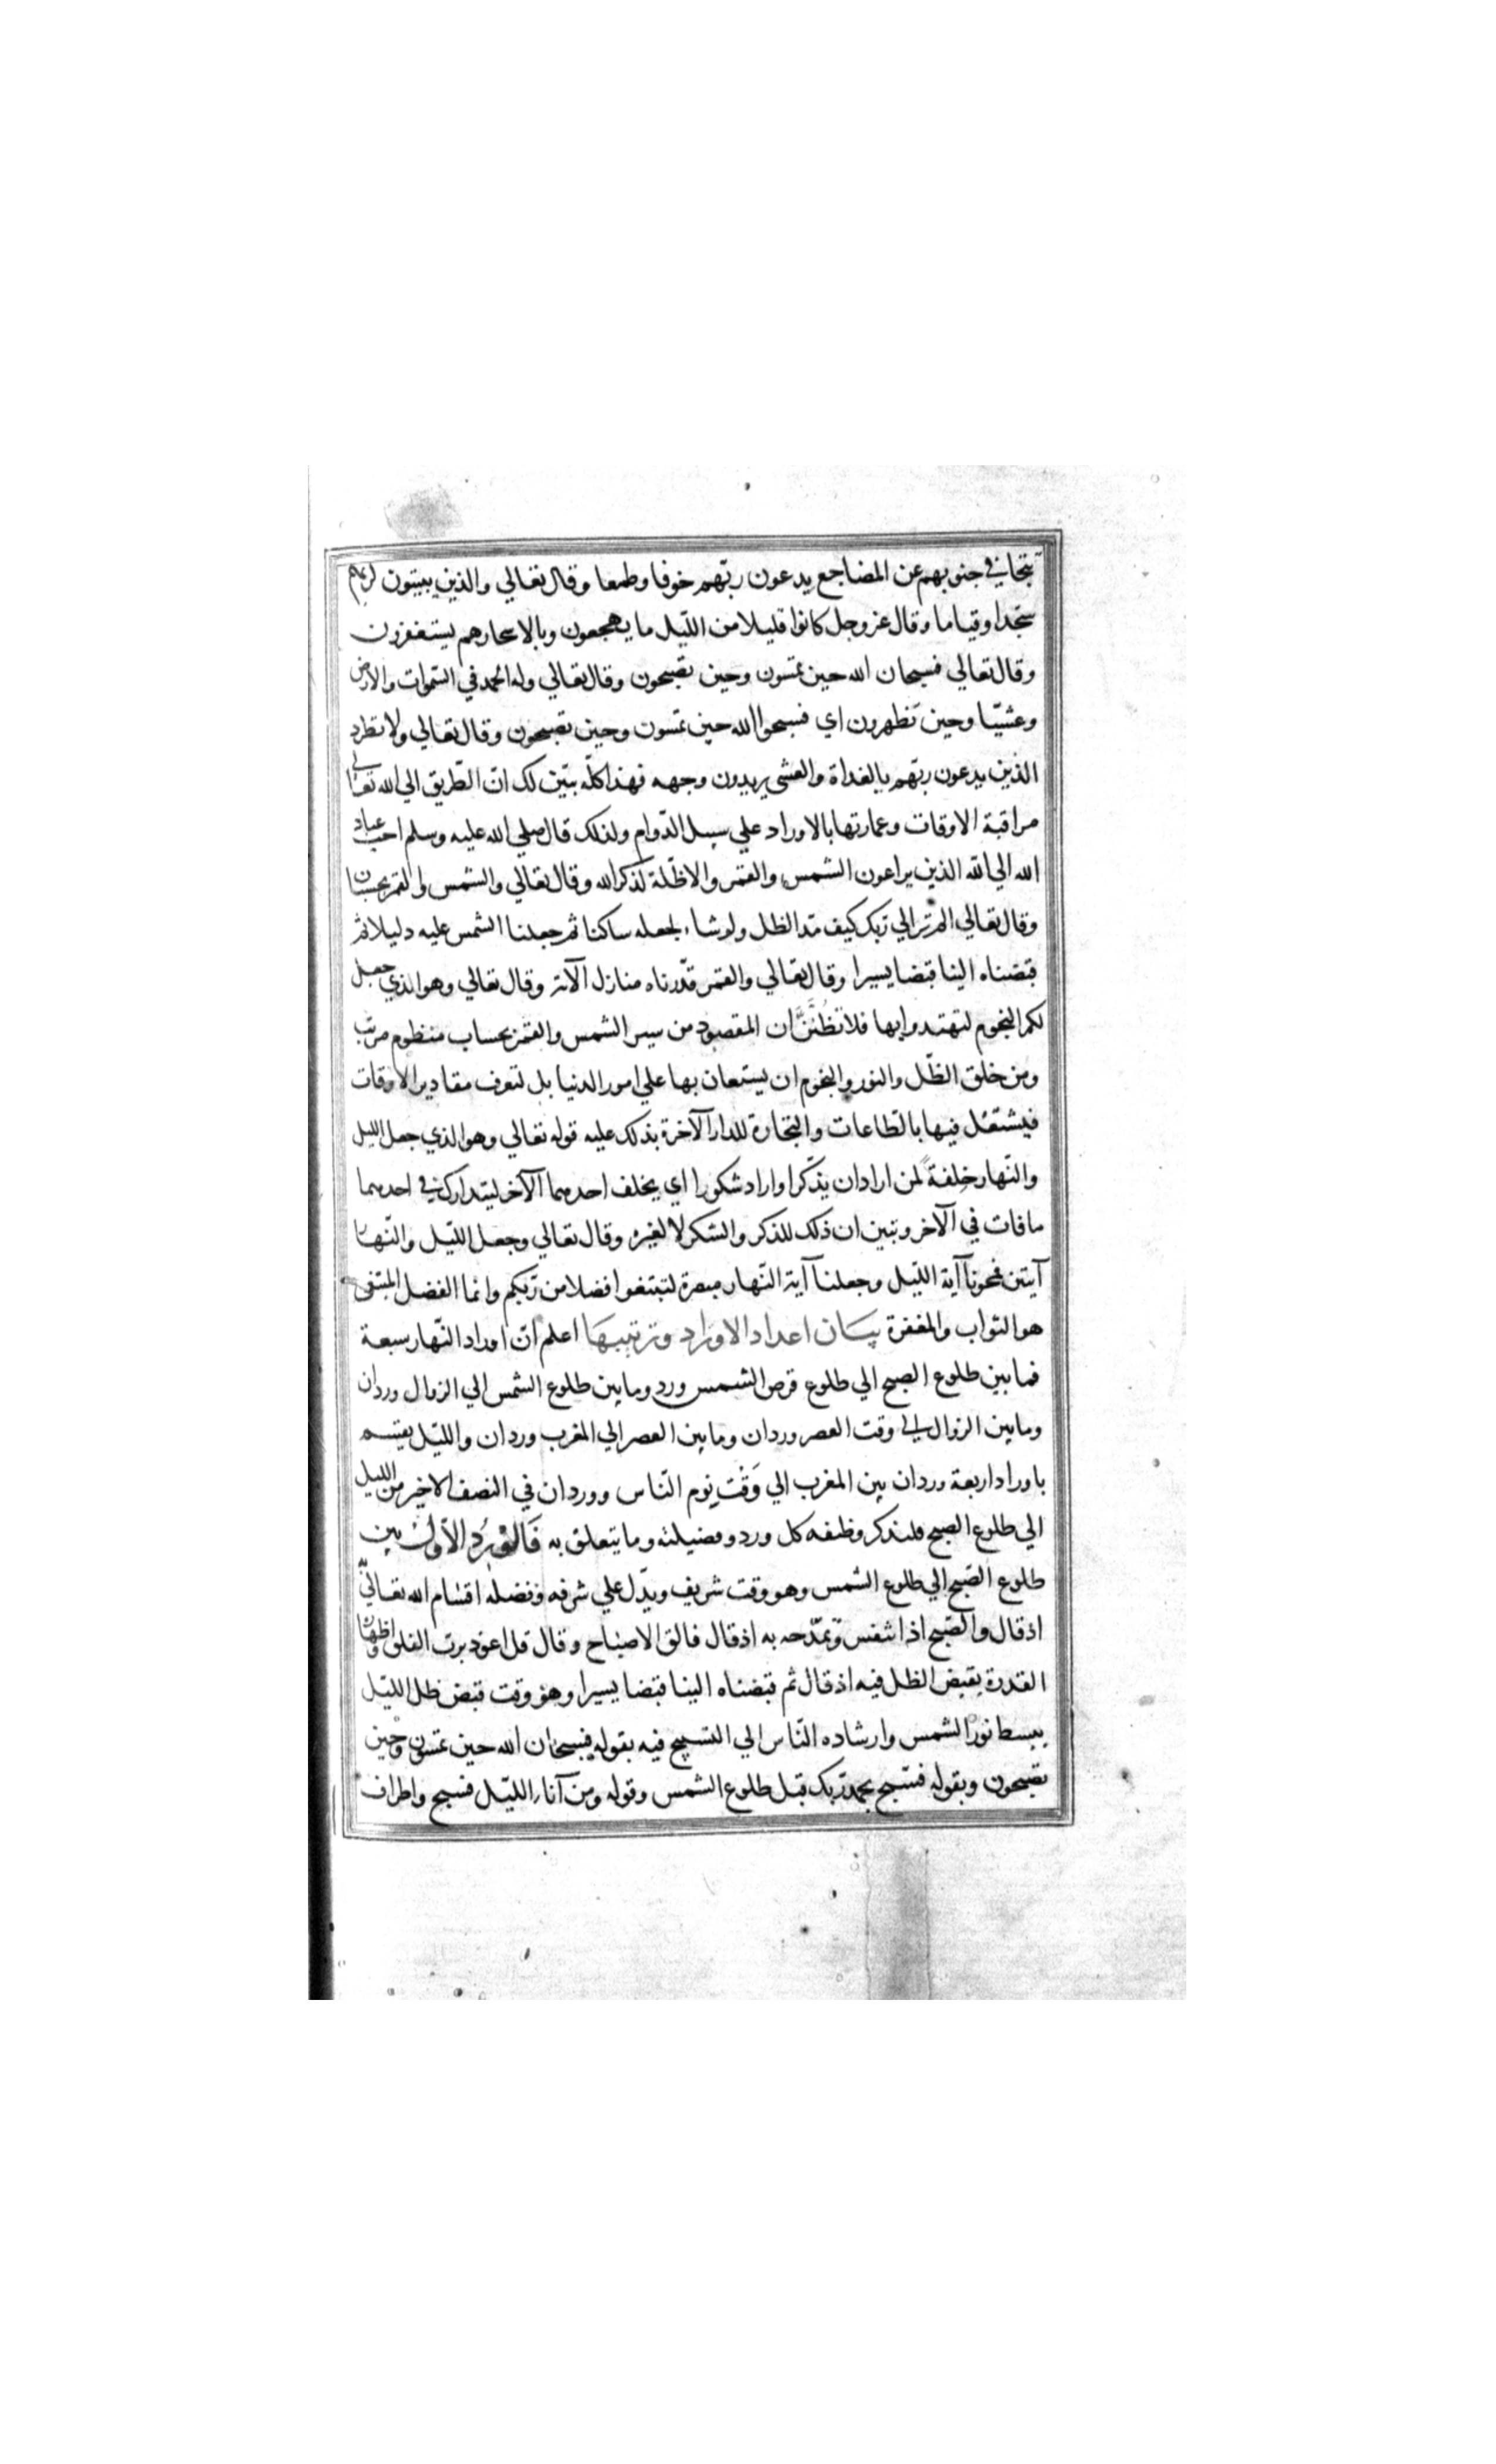 تتجافي جنوبهم عن المضاجع يدعون ربّهم خوفا وطمعا وقال تعالي والذين يبيتون لربهم
سجّدا وقياما وقال عز وجل كانوا قليلا من اللّيل ما يهجعون وبالاسحارهم يستغفرون
وقال تعالي فسبحان الله حين تمسون وحين تصبحون وقال تعالي وله الحمد في السّموات والارض
وعشيّا وحين تظهرون اي فسبحوا الله حين تمسون وحين تصبحون وقال تعالي ولا تطرد
الذين يدعون ربّهم بالغداة والعشي يريدون وجهه فهذا كلّه يبيّن لك انّ الطّريق الي الله تعالي
مراقبة الاوقات وعمارتها بالاوراد علي سبيل الدّوام ولذلك قال صلي الله عليه وسلم احب عباد
الله الي الله الذين يراعون الشمس والقمر والاظلّة لذكر الله وقال تعالي والشمس والقمر بحسبان
وقال تعالي الم تر الي ربّك كيف مدّ الظل ولو شاء لجعله ساكنا ثم جعلنا الشمس عليه دليلا ثم
قبضناه الينا قبضا يسيرا وقال تعالي والقمر قدّرناه منازل الآية وقال تعالي وهو الذي جعل
لكم النجوم لتهتدوا بها فلا تظُنّنّ ان المقصود من سير الشمس والقمر بحساب منظوم مرتب
ومن خلق الظّل والنور والنجوم ان يستعان بها علي امور الدنيا بل لتعرف مقادير الاوقات
فيشتغل فيها بالطّاعات والتجارة للدار الآخرة يدلك عليه قوله تعالي وهو الذي جعل الليل
والنّهار خِلفةً لمن اراد ان يذّكر او اراد شكورا اي يخلف احدهما الآخر ليتدارك في احدهما
ما فات في الآخر وتبين ان ذلك للذكر والشكر لا لغيره وقال تعالي وجعل اللّيل والنّهار
آيتين فمحونا آية اللّيل وجعلنا آية النّهار مبصرة لتبتغوا فضلا من ربّكم وانما الفضل المبتغي
هو الثواب والمغفرة بيَان اعداد الاوراد وترتيبهَا اعلم انّ اوراد النّهار سبعة
فما بين طلوع الصبح الي طلوع قرص الشمس ورد وما بين طلوع الشمس الي الزوال وردان
وما بين الزوال الي وقت العصر وردان وما بين العصر الي المغرب وردان واللّيل يقتسم
باوراد اربعة وردان بين المغرب الي وَقْت نوم النّاس ووردان في النصف الاخير من الليل
الي طلوع الصبح فلنذكر وظيفه كل ورد وفضيلته وما يتعلق به فَالوِرْدُ الاَوّل بين
طلوع الصّبح الي طلوع الشمس وهو وقت شريف ويدّل علي شرفه وفضله اقسام الله تعالي به
اذ قال والصّبح اذا تنفس وتمدّحه به اذ قال فالق الاصباح وقال قل اعوذ برب الفلق واظهار
القدرة بقبض الظل فيه اذ قال ثم قبضناه الينا قبضا يسيرا وهو وقت قبض ظل اللّيل
ببسط نور الشمس وارشاده النّاس الي التسبيح فيه بقوله فسبحان الله حين تمسون وحين
تصبحون وبقوله فسبّح بحمد ربّك قبل طلوع الشمس وقوله ومن آناء اللّيل فسبح واطراف